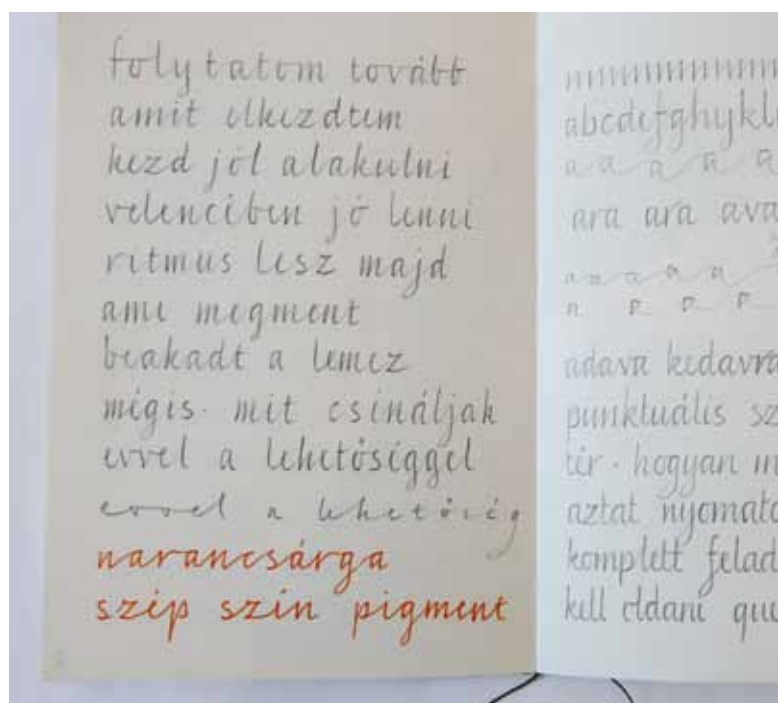 folytatom tovább
amit elkezdtem
kezd jól alakulni
velencében jó lenni
ritmus lesz majd
ami megment
beakadt a lemez
mégis mit csináljak
evvel a lehetőséggel
evvel a lehetőség
narancsárga
szép szín pigment
abcdefghijkl
a a a a a
ara ara ava
a a a a a
n p p p
adava kedavra
punktuális sz
tér · hogyan m
aztat nyomato
komplett felad
kell oldani